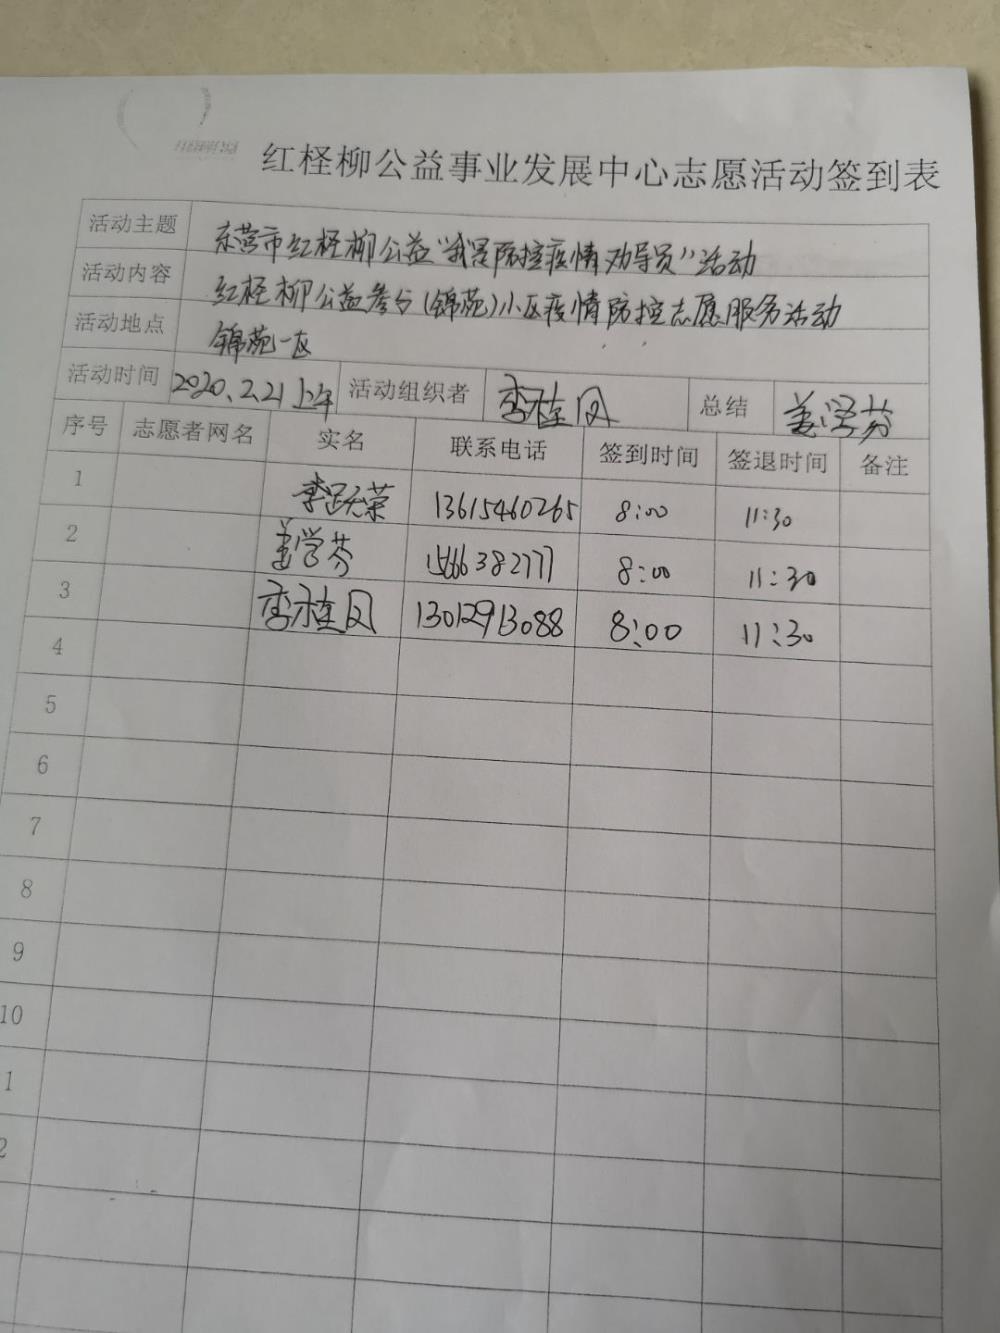 红柽柳公益事业发展中心志愿活动签到表
活动主题 东营市红柽柳公益“我是防控疫情劝导员”活动
活动内容 红柽柳公益参与(锦苑)小区疫情防控志愿服务活动
活动地点 锦苑一区
活动时间 2020.2.21上午 活动组织者 李桂凤 总结 姜学芬
序号 志愿者网名 实名 联系电话 签到时间 签退时间 备注
1 李跃荣 13615460265 8:00 11:30
2 姜学芬 15666382777 8:00 11:30
3 李桂凤 13012913088 8:00 11:30
4
5
6
7
8
9
10
1
2